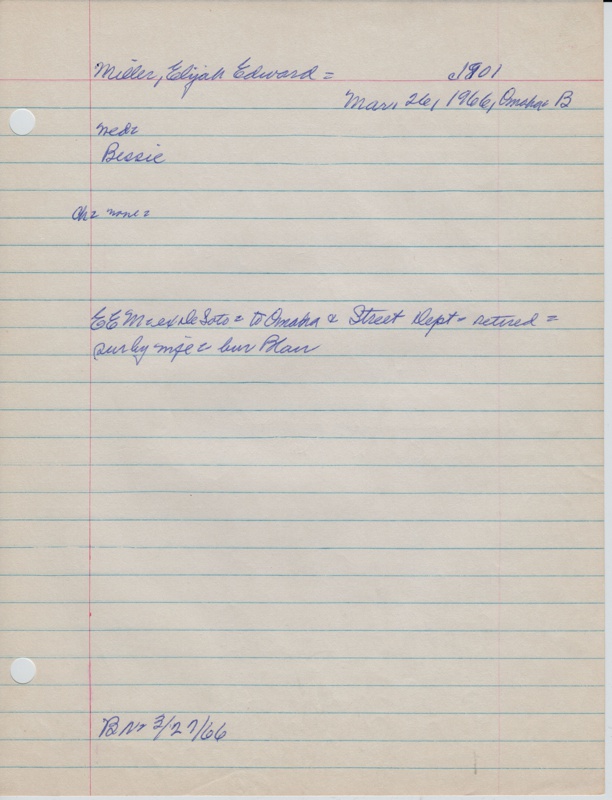 Miller, Elijah Edward = 1901
Mar. 26, 1966, Omaha B
med=
Bessie
Ch= none=
EEM= ex DeSoto= to Omaha & Street Dept= retired=
sur by wife= bur Blair
BN= 3/27/66